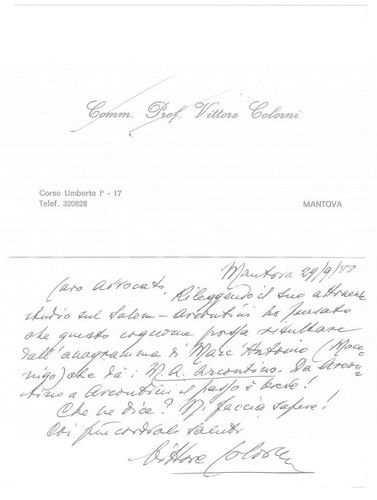 Comm. Prof. Vittore Colorni
Corso Umberto I° - 17
Telef. 320628
MANTOVA
Mantova 29/9/
Caro Avvocato, Rileggendo il suo attraente
studio sul Salom-Arcontini ho pensato
che questo cognome possa risultare
dall'anagramma di Marc'Antonio (Moce-
nigo) che dà: M. A. Arcontino. Da Arcon-
tino a Arcontini il passo è breve!
Che ne dice? Mi faccia sapere!
Coi più cordiali saluti
Vittore Colorni